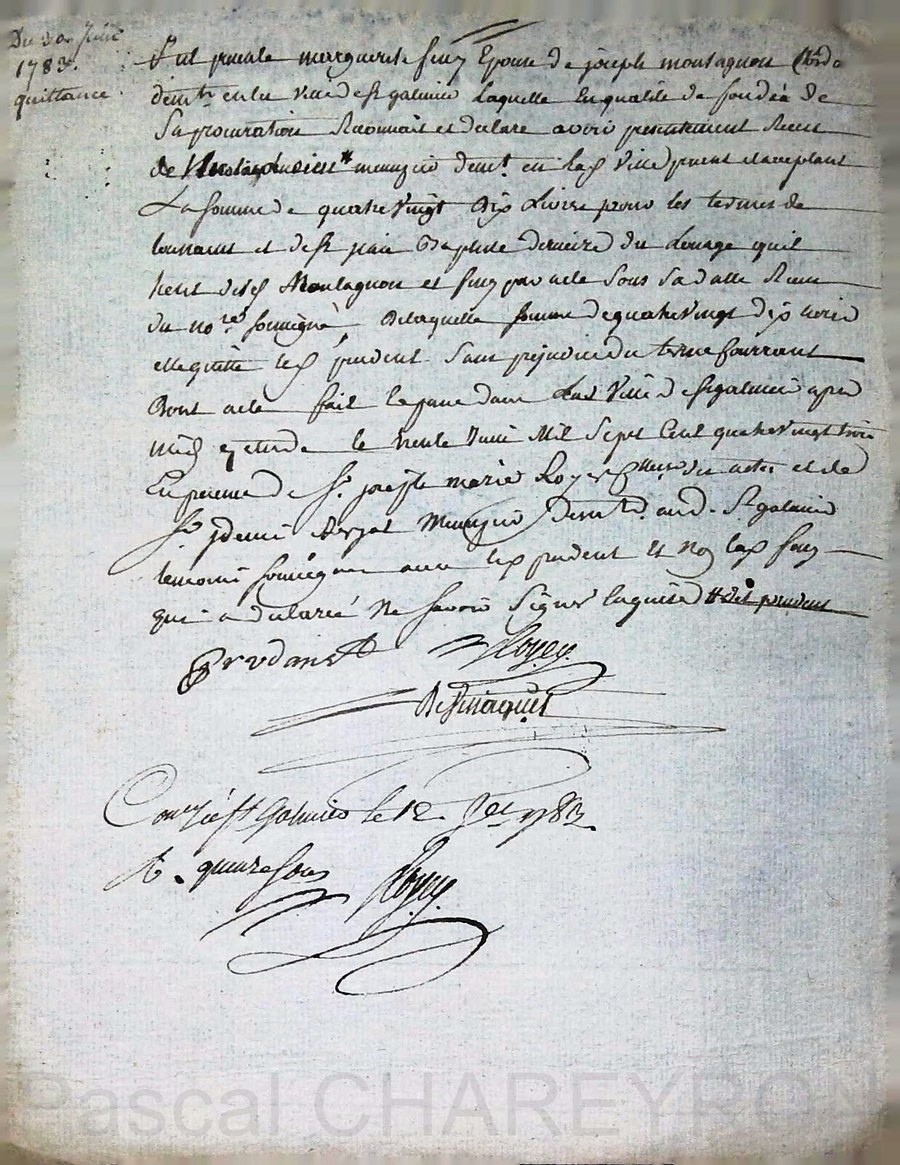 Du 30 Juin
1783.
quittance
Fut presente marguerite fury Epouse de joseph montagnon
demt en la Ville de st galmier Laquelle En qualité de fondée de
Sa procuration Reconnait et declare avoir presentement Receu
de menuzier demt en lad Ville present et aceptant
La somme de quatre vingt Dix Livres pour les termes de
toussaint et de st jean Baptiste derniere du Louage quil
tient desd Montagnon et fury par acte sous sa datte Receu
du nore soussigné, De laquelle somme de quatre vingt dix livres
elle quitte led prudent sans prejudice du terme Courrant
Dont acte fait Lu passé dans Lad Ville de st galmier apres
midy le trente Juin Mil Sept Cent quatre vingt trois
En presence de Sr. joseph marie Royer des actes et de
Sr. Menuzier Demt aud. St galmier
temoins soussignes avec led prudent et Non lad fury
qui a declaré Ne savoir Signer Enquise # dit prudent
Prudant Royey
Desmaques
Con à st Galmier le 12 Jet 1783.
R. quinze sous Royey